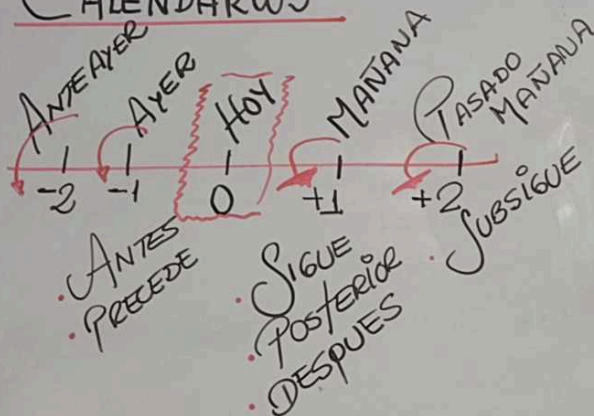 CALENDARIOS
ANTEAYER
AYER
HOY
MAÑANA
PASADO
MAÑANA
-2
-1
0
+1
+2
. ANTES
. PRECEDE
. SIGUE
. POSTERIOR
. DESPUES
. SUBSIGUE